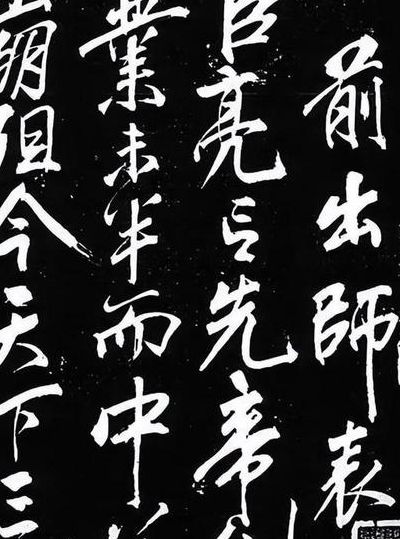 前出師表
臣亮言先帝
業未半而中
崩殂今天下三